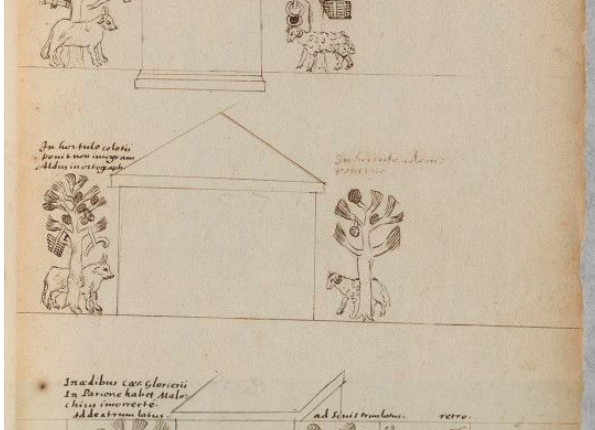 In hortulo colotii
ponit non integram
Aldus in ortograph
In hortulo
In ædibus Cæs. Glorierii
In Parione habet Malo-
chius incorrecte.
Ad dextrum latus.
ad sinistrum latus.
retro.